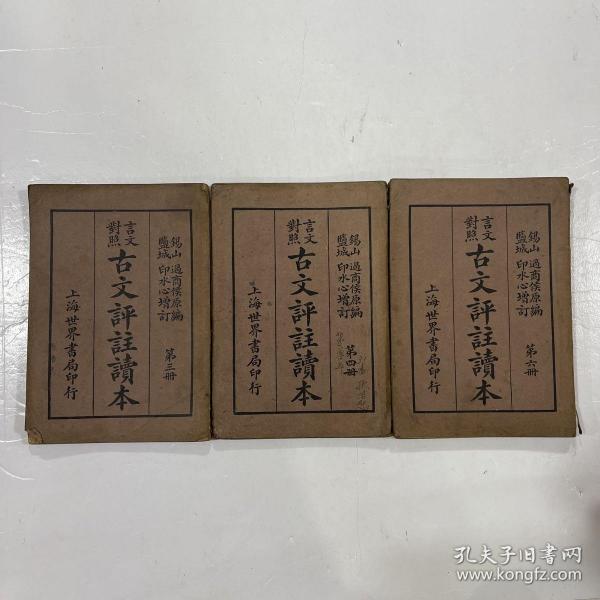 錫山 過商侯原編
鹽城 印水心增訂
第三冊
言文
對照
古文評註讀本
上海世界書局印行
錫山 過商侯原編
鹽城 印水心增訂
第四冊
言文
對照
古文評註讀本
上海世界書局印行
錫山 過商侯原編
鹽城 印水心增訂
第六冊
言文
對照
古文評註讀本
上海世界書局印行
孔夫子旧书网
www.kongfz.com